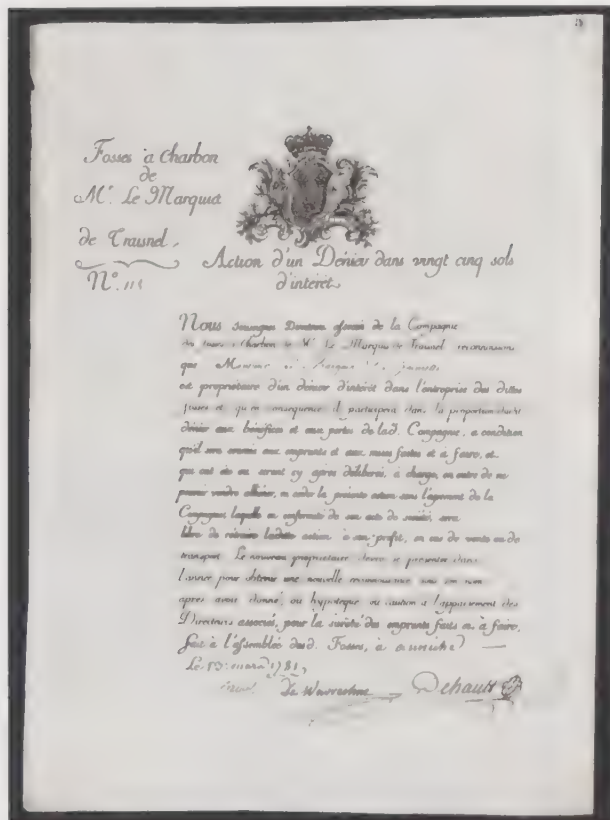 Fosses à Charbon
de
Mr. Le Marquis
de Traisnel.
No. 111
Action d'un Dénier dans vingt cinq sols
d'intéret.
Nous Soussignés Directeurs associés de la Compagnie
des fosses à Charbon de Mr. Le Marquis de Traisnel reconnaissons
que Monsieur Le Marquis de
est propriétaire d'un dénier d'intérêt dans l'entreprise des dittes
fosses et qu'en consequence il participera dans la proportion dudit
dénier aux bénéfices et aux pertes de lad. Compagnie, a condition
qu'il sera soumis aux emprunts et aux mises faites et à faire, et
qui ont été ou seront cy après déliberés, à charge, en outre de ne
pouvoir vendre, ou céder la présente action sans l'agrément de la
Compagnie laquelle en conformité de son acte de société, sera
libre de retraire laditte action à son profit, en cas de vente ou de
transport. Le nouveau propriétaire devra se présenter dans
l'année pour obtenir une nouvelle reconnaissance en son nom
après avoir donné, ou hypoteque ou caution a l'appaisement des
Directeurs associés, pour la sureté des emprunts faits ou à faire,
fait à l'assemblée desd. Fosses, à aniche
Le 13 mars 1781,
De Warenghien Dehault